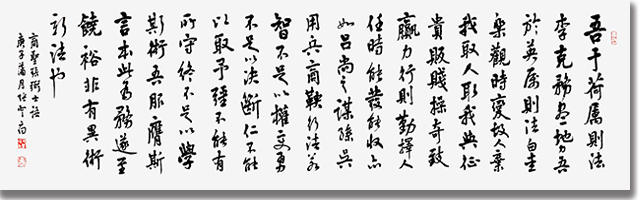 吾于荷属则法
李克务尽地力吾
于英属则法白圭
乐观时变故人弃
我取人取我与征
贵贩贱操奇致
赢力行则勤择人
任时能发能收亦
如吕尚之谋孙吴
用兵商鞅行法若
智不足以权变勇
不足以决断仁不能
以取予强不能有
所守终不足以学
斯术吾服膺斯
言本此为务遂至
饶裕非有异术
新法也
商圣张弼士语
庚子